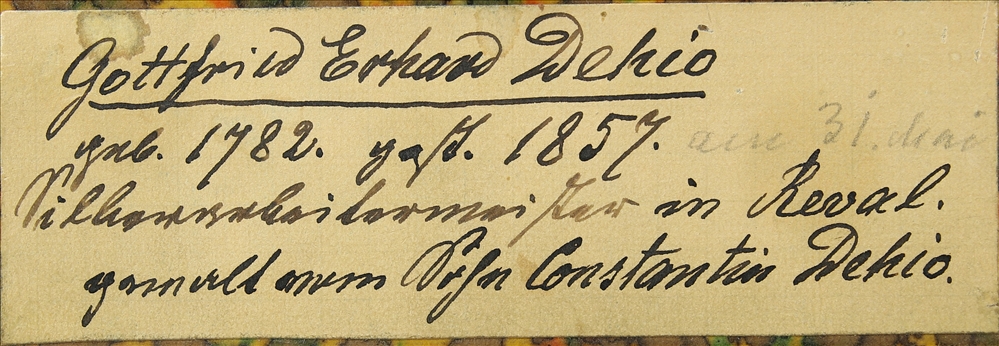 Gottfried Erhard Dehio
geb. 1782. gest. 1857. am 31. Mai
Silberarbeitermeister in Reval.
gemalt vom Sohn Constantin Dehio.